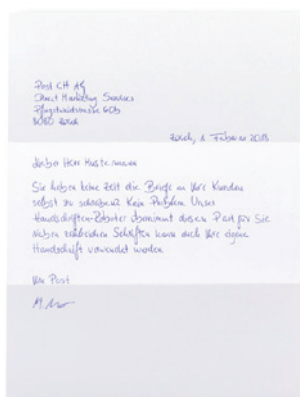 Post CH AG
Direct Marketing Services
Pfingstweidstrasse 60b
8080 Zürich
Zürich, 1. Februar 2018
Lieber Herr Mustermann
Sie haben keine Zeit die Briefe an Ihre Kunden
selbst zu schreiben? Kein Problem. Unser
Handschriften-Roboter übernimmt diesen Part für Sie
Neben zahlreichen Schriften kann auch Ihre eigene
Handschrift verwendet werden.
Ihre Post